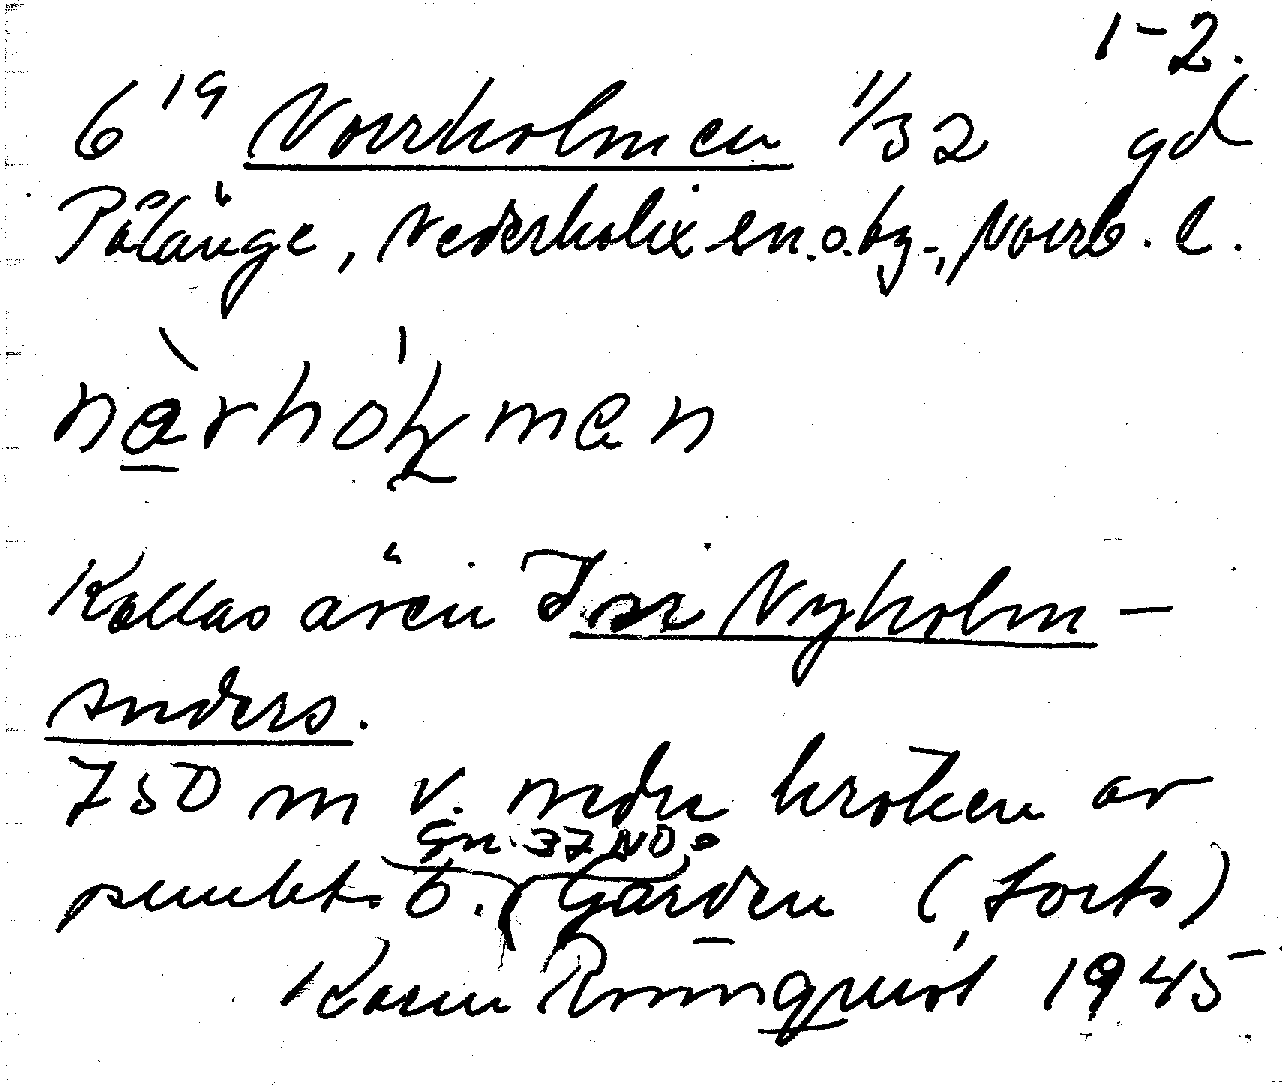 1-2.
6¹⁹ Norrholmen 1/32 gd
Pålänge, Nederkalix sn. o. by., Norrb. l.
nàrhól̥man
Kallas även Nyholm-
anders.
750 m v. nedre kröken av
Gn. 37 NO.
punkt 6. Gården (forts)
Karin Rönnquist 1945